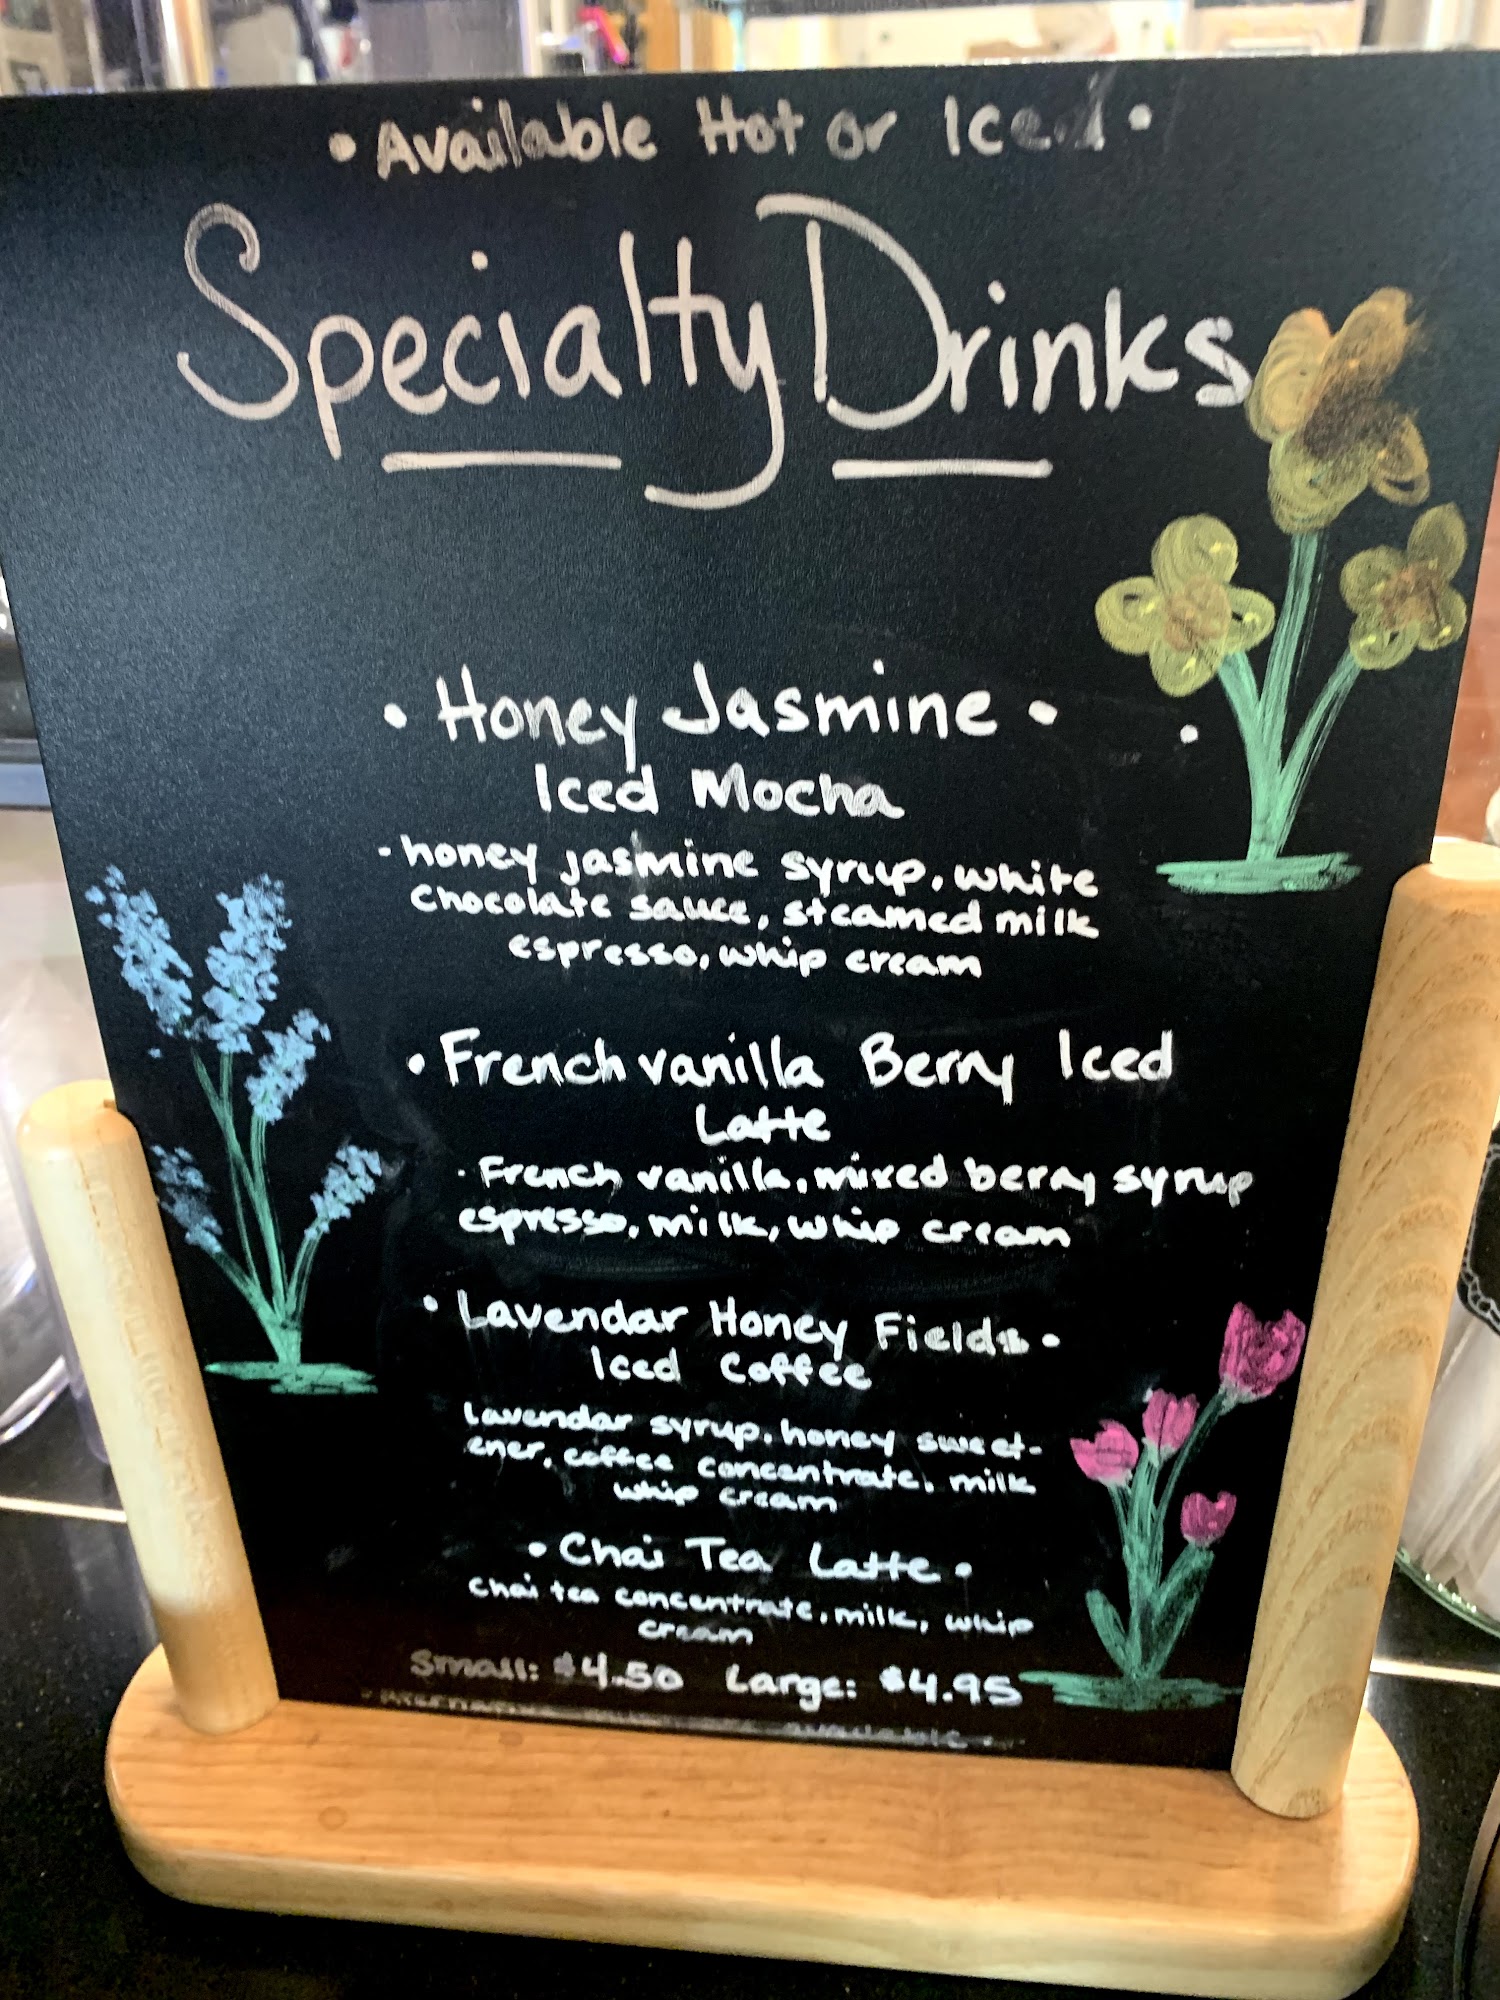 • Available Hot or Iced •
Specialty Drinks
• Honey Jasmine •
Iced Mocha
- honey jasmine syrup, white
chocolate sauce, steamed milk
espresso, whip cream
• French vanilla Berry Iced
Latte
· French vanilla, mixed berry syrup
espresso, milk, whip cream
• Lavendar Honey Fields •
Iced Coffee
Lavendar syrup, honey sweet-
ener, coffee concentrate, milk
whip cream
• Chai Tea Latte •
chai tea concentrate, milk, whip
cream
Small: $4.50 Large: $4.95
available